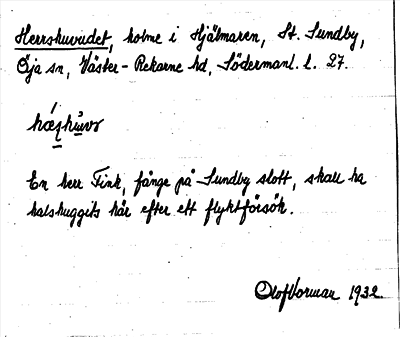 Herrshuvudet, holme i Hjälmaren, St. Sundby,
Öja sn, Väster-Rekarne hd, Södermanl. l. 27.
hæṣhùvv
En herr Fink, fånge på Sundby slott, skall ha
halshuggits här efter ett flyktförsök.
Olof Vorman 1932